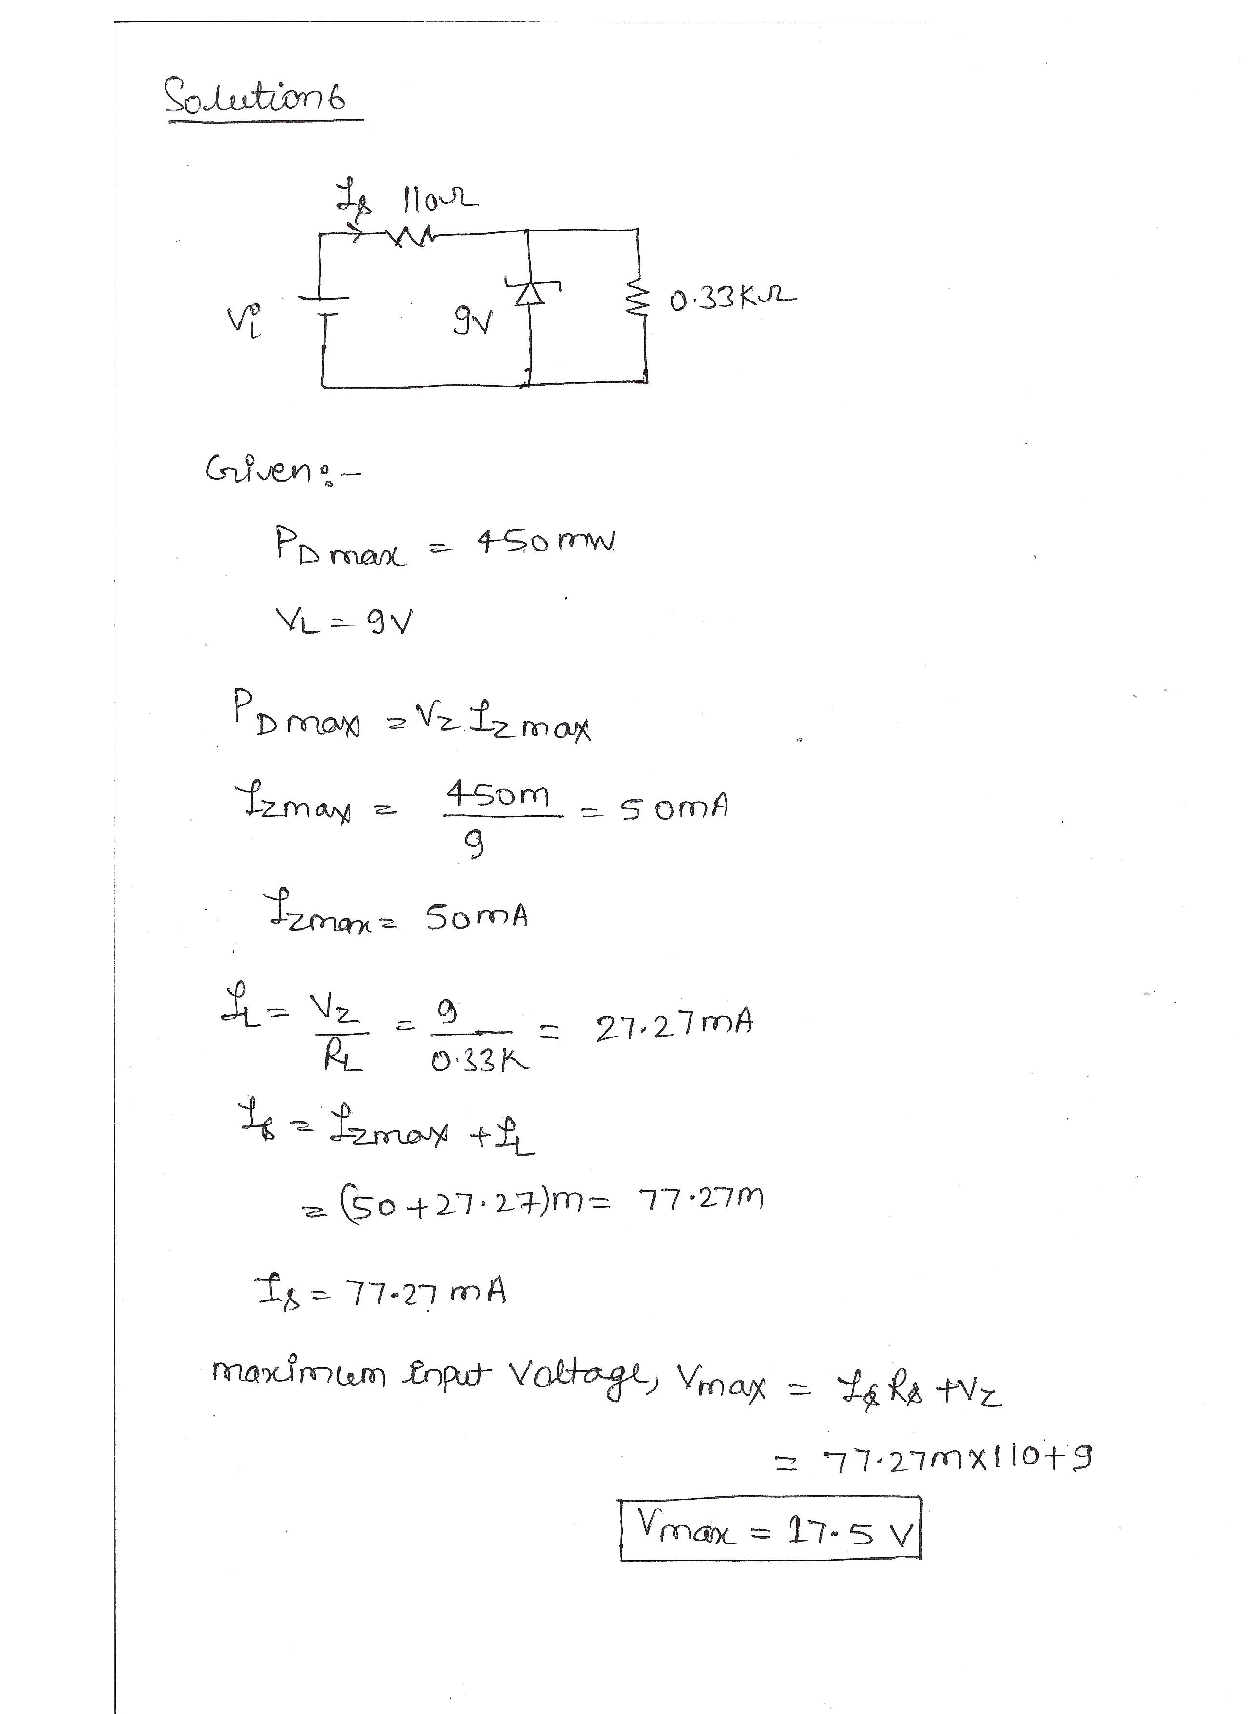 Solution 6
Is 110Ω
Vi
9V
0.33KΩ
Given:-
PDmax = 450mW
VL = 9V
PDmax = Vz Izmax
Izmax = 450m/9 = 50mA
Izmax = 50mA
IL = Vz/RL = 9/0.33K = 27.27mA
Is = Izmax + IL
= (50+27.27)m = 77.27m
Is = 77.27 mA
maximum input Voltage, Vmax = Is Rs + Vz
= 77.27m x 110 + 9
Vmax = 17.5 V